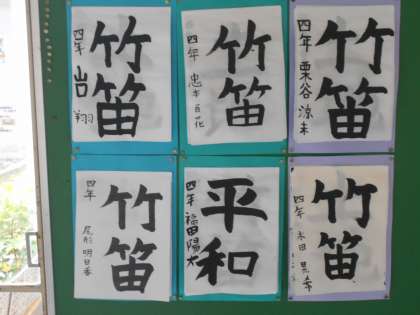 竹笛
四年 山口 翔
竹笛
四年 忠本百花
竹笛
四年 栗谷涼未
竹笛
四年 尾形明日香
平和
四年 福田陽太
竹笛
四年